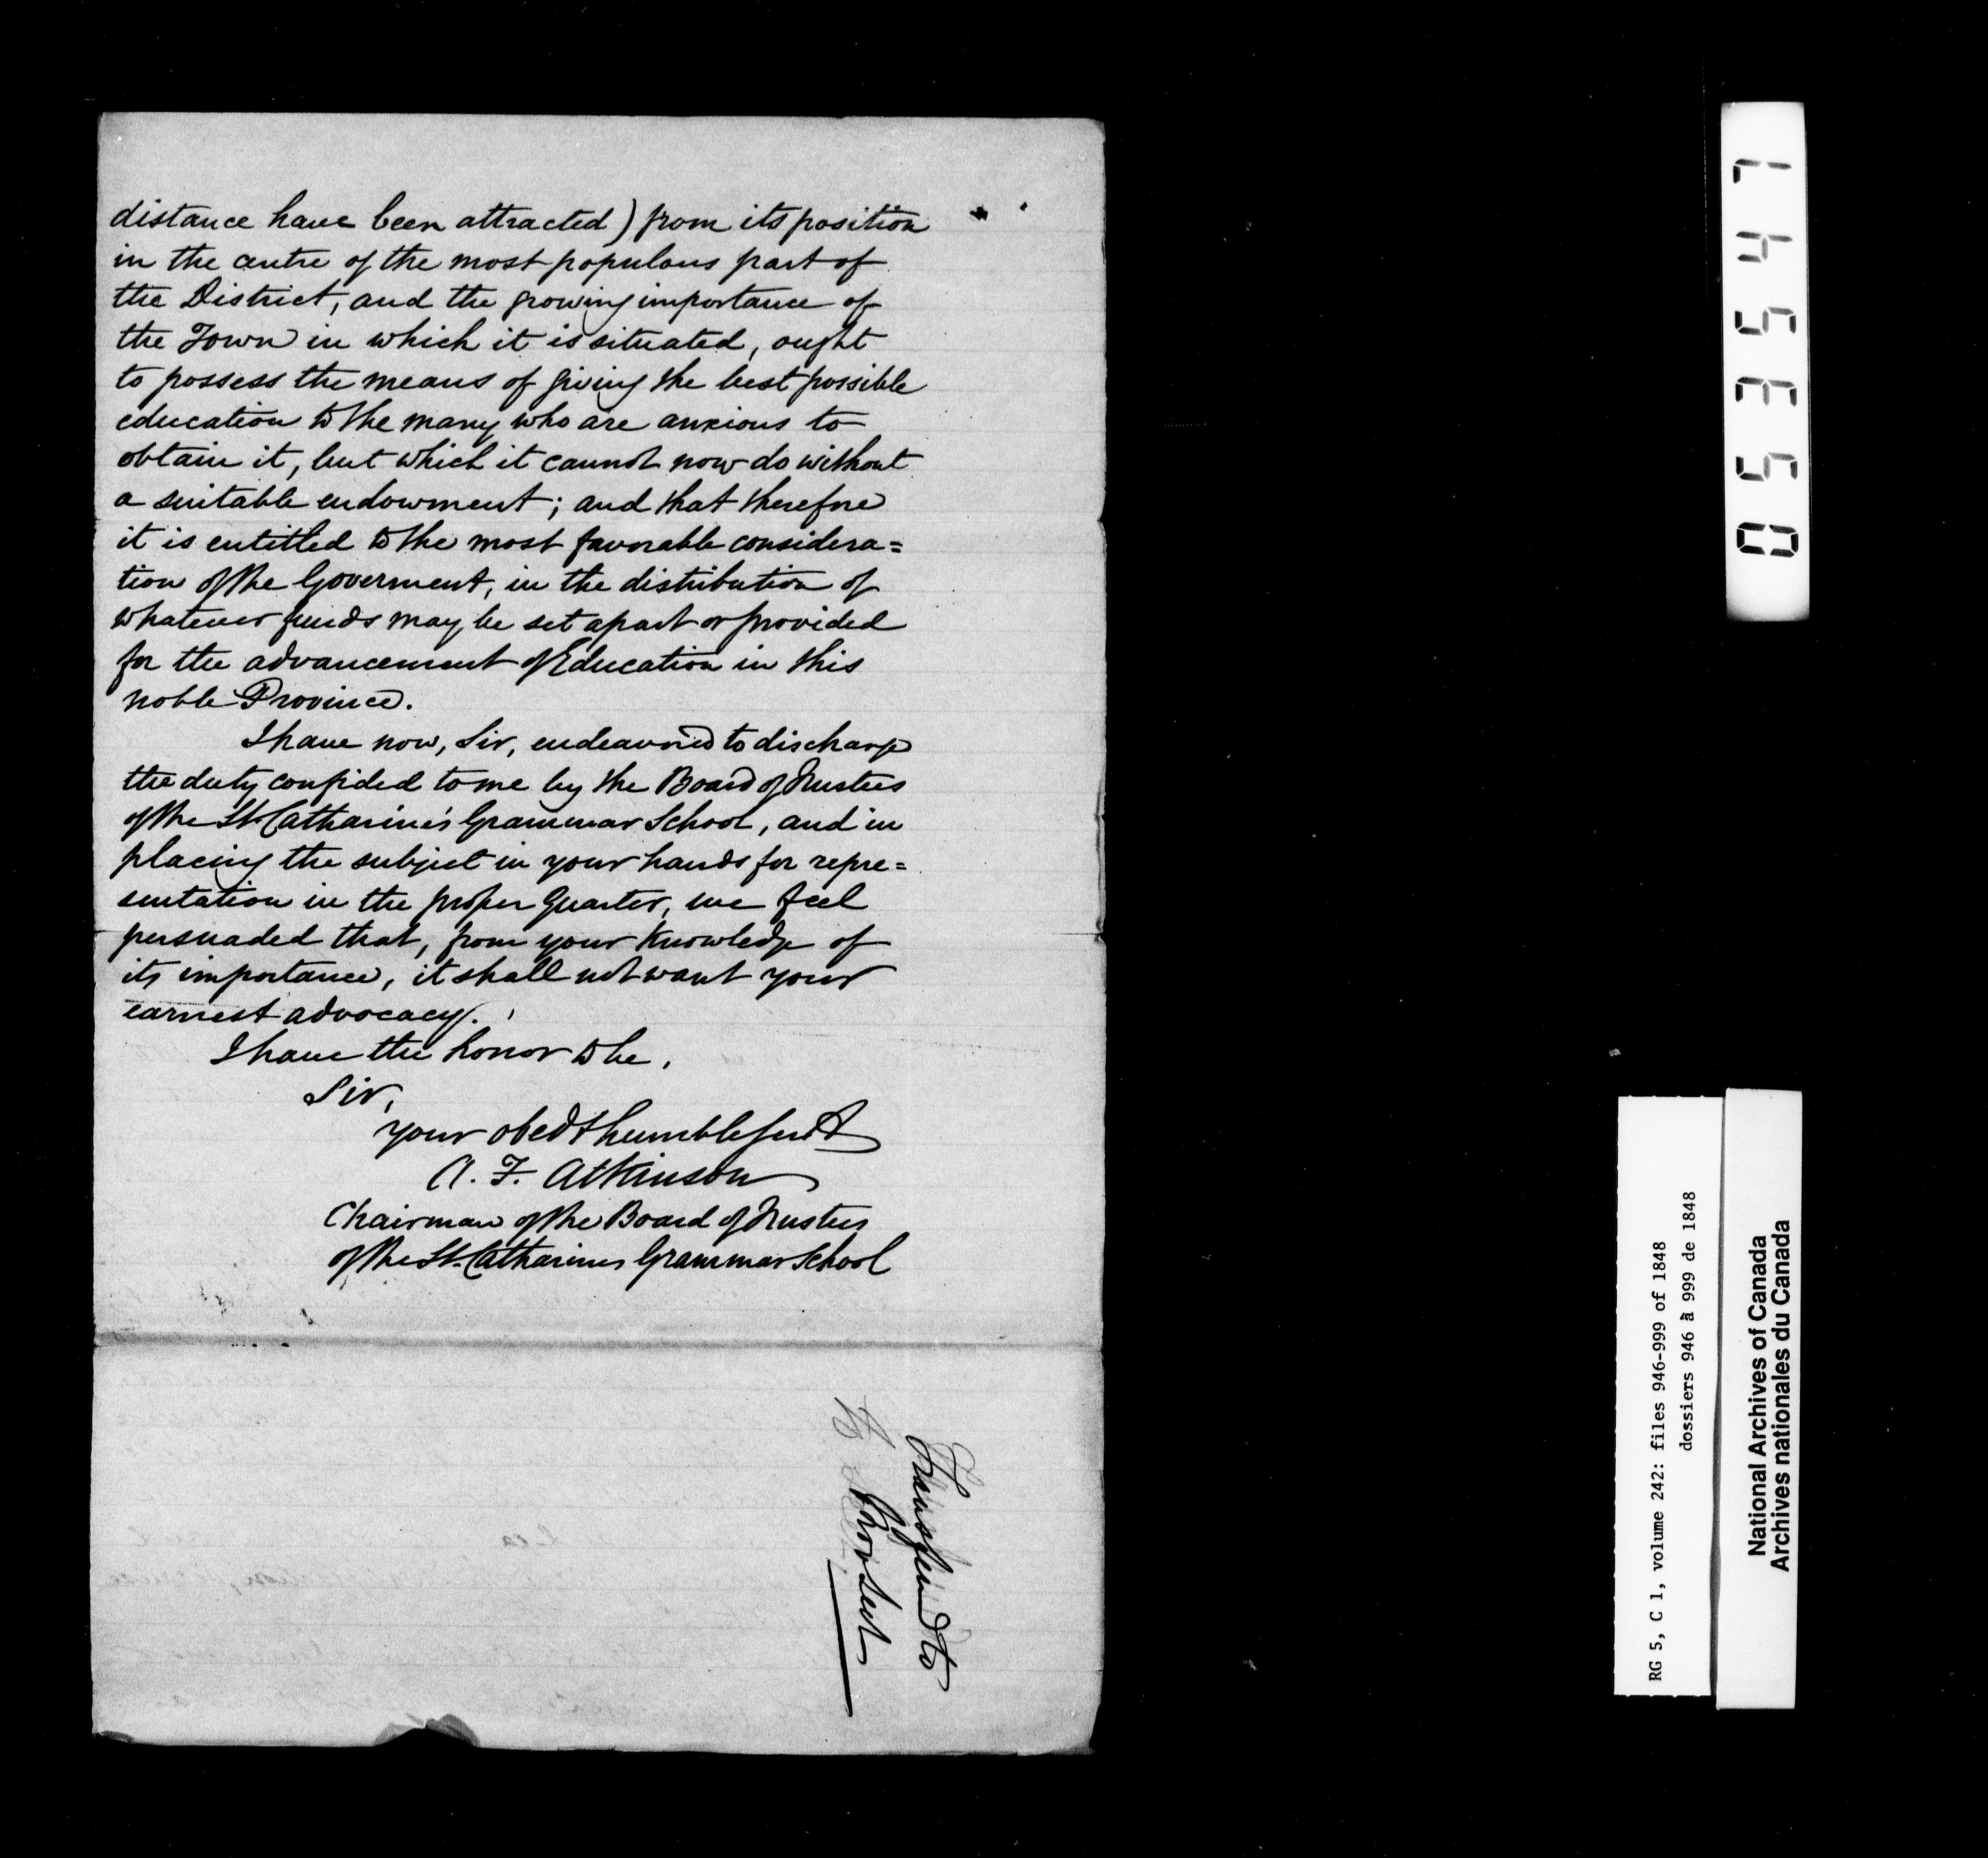 distance have been attracted) from its position
in the centre of the most populous part of
the District, and the growing importance of
the Town in which it is situated, ought
to possess the means of giving the best possible
education to the many who are anxious to
obtain it, but which it cannot now do without
a suitable endowment; and that therefore
it is entitled to the most favorable considera=
tion of the Goverment, in the distribution of
whatever funds may be set apart or provided
for the advancement of Education in this
noble Province.
I have now, Sir, endeavored to discharge
the duty confided to me by the Board of Trustees
of the St. Catharine's Grammar School, and in
placing the subject in your hands for repre=
sentation in the proper quarter, we feel
persuaded that, from your knowledge of
its importance, it shall not want your
earnest advocacy.
I have the honor to be,
Sir,
your obedt humble servt
A. F. Atkinson
Chairman of the Board of Trustees
of the St. Catharines Grammar School
053547
RG 5, C 1, volume 242: files 946-999 of 1848
dossiers 946 à 999 de 1848
National Archives of Canada
Archives nationales du Canada